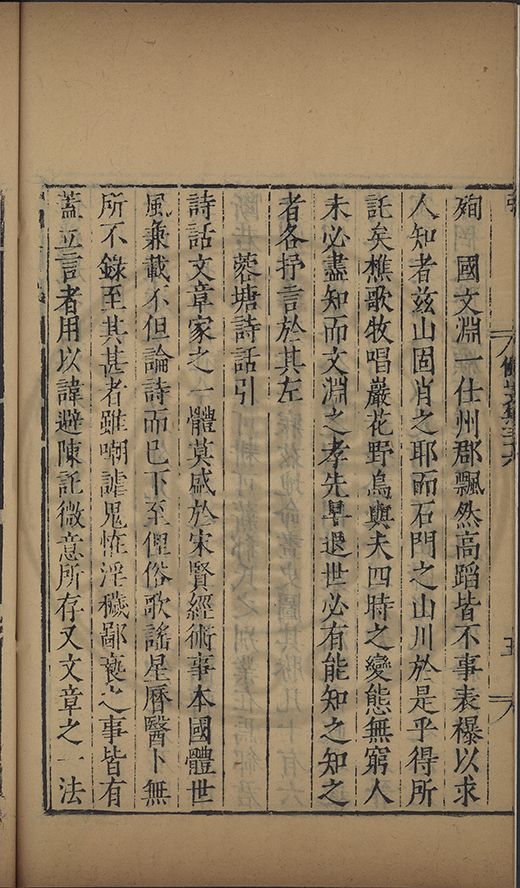 殉　國文淵一仕州郡飄然高蹈皆不事表襮以求
人知者玆山固肖之耶而石門之山川於是乎得所
託矣樵歌牧唱嚴花野鳥與夫四時之變態無窮人
未必盡知而文淵之孝先早退世必有能知之知之
者各抒言於其左
蓉塘詩話引
詩話文章家之一體莫盛於宋賢經術事本國體世
風兼載不但論詩而已下至俚俗歌謠星曆醫卜無
所不錄至其甚者雖嘲謔鬼怪淫穢鄙褻之事皆有
蓋立言者用以諱避陳託微意所存又文章之一法